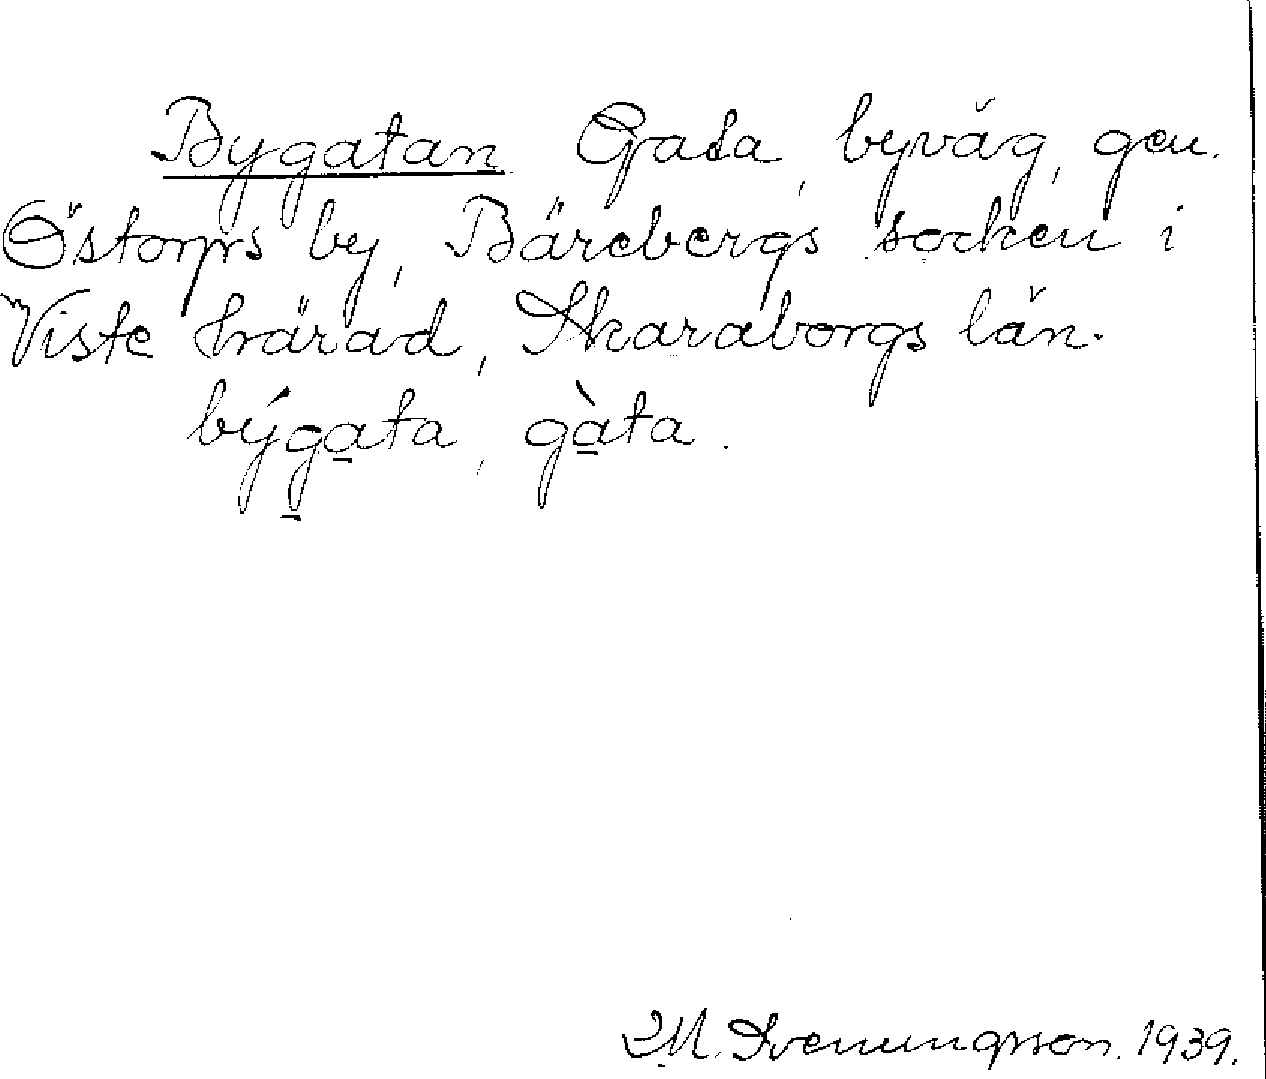 Bygatan Gata, byväg, gen.
Östorps by, Bärebergs socken i
Viste härad, Skaraborgs län.
býgata, gàta.
M. Svenungsson. 1939.